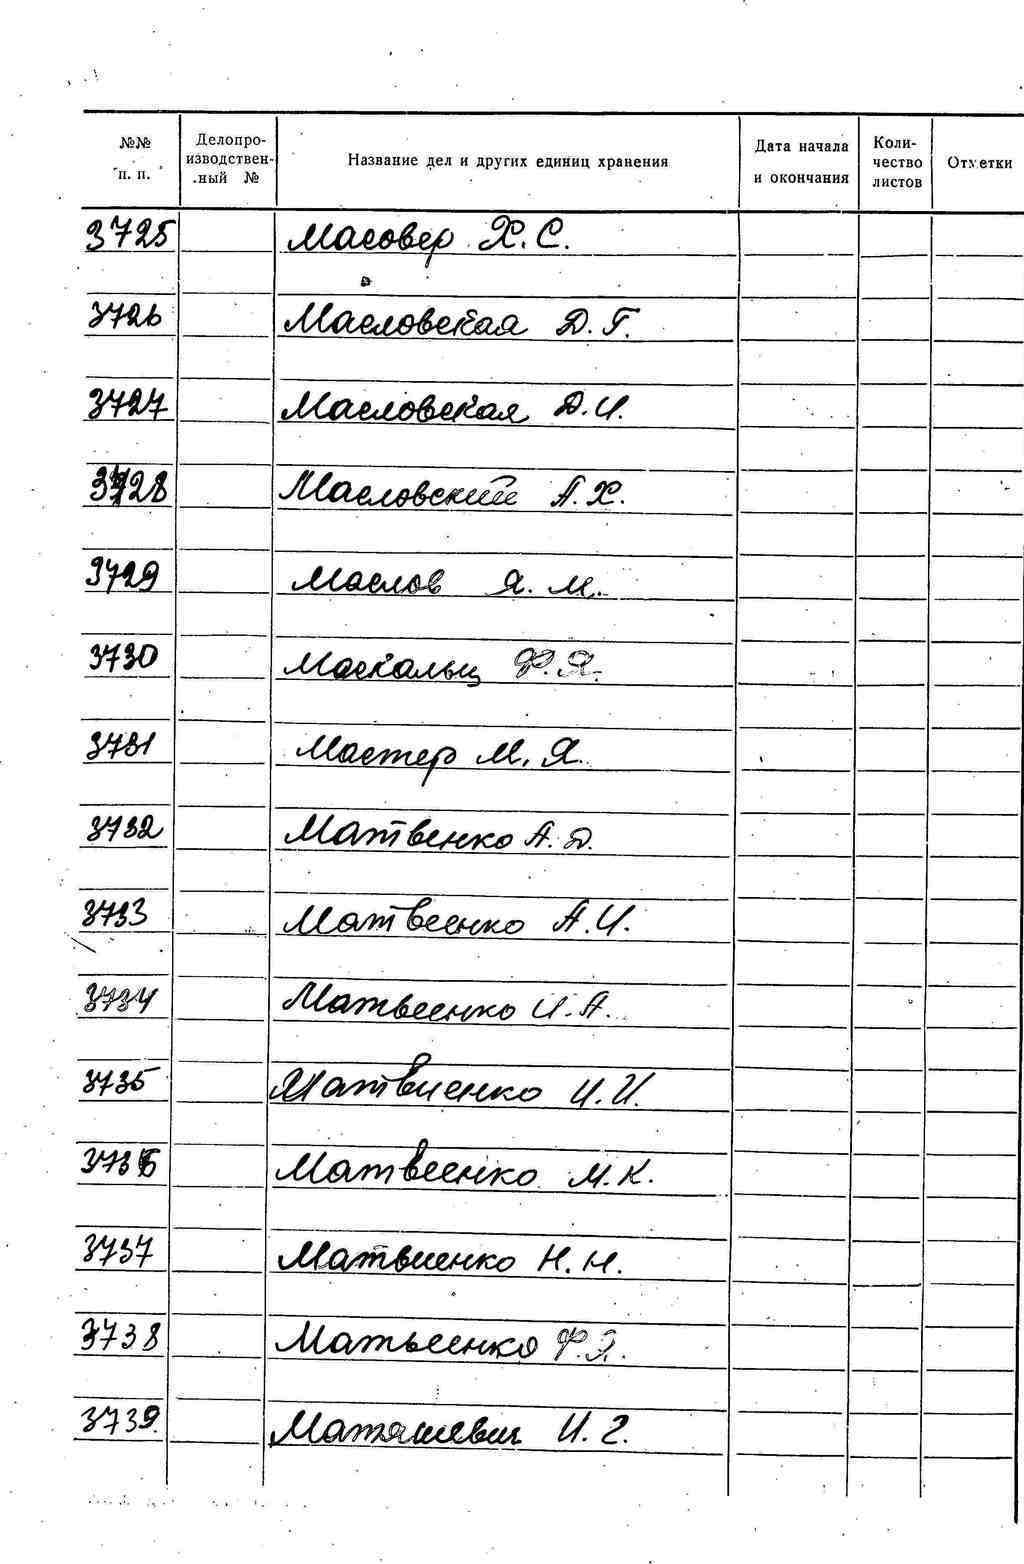 №№ п. п. Делопроизводствен-ный № Название дел и других единиц хранения Дата начала и окончания Количество листов Отметки
3725 Масовер Х. С.
3726 Масловская Д. Г.
3727 Масловская Д. И.
3728 Масловский А. Х.
3729 Маслов Я. М.
3730 Маскальц Ф. Я.
3731 Мастер М. Я.
3732 Матвенко А. Д.
3733 Матвеенко А. И.
3734 Матвеенко И. А.
3735 Матвиенко И. И.
3736 Матвеенко М. К.
3737 Матвиенко Н. Н.
3738 Матвеенко Ф. З.
3739 Маташевич И. Г.